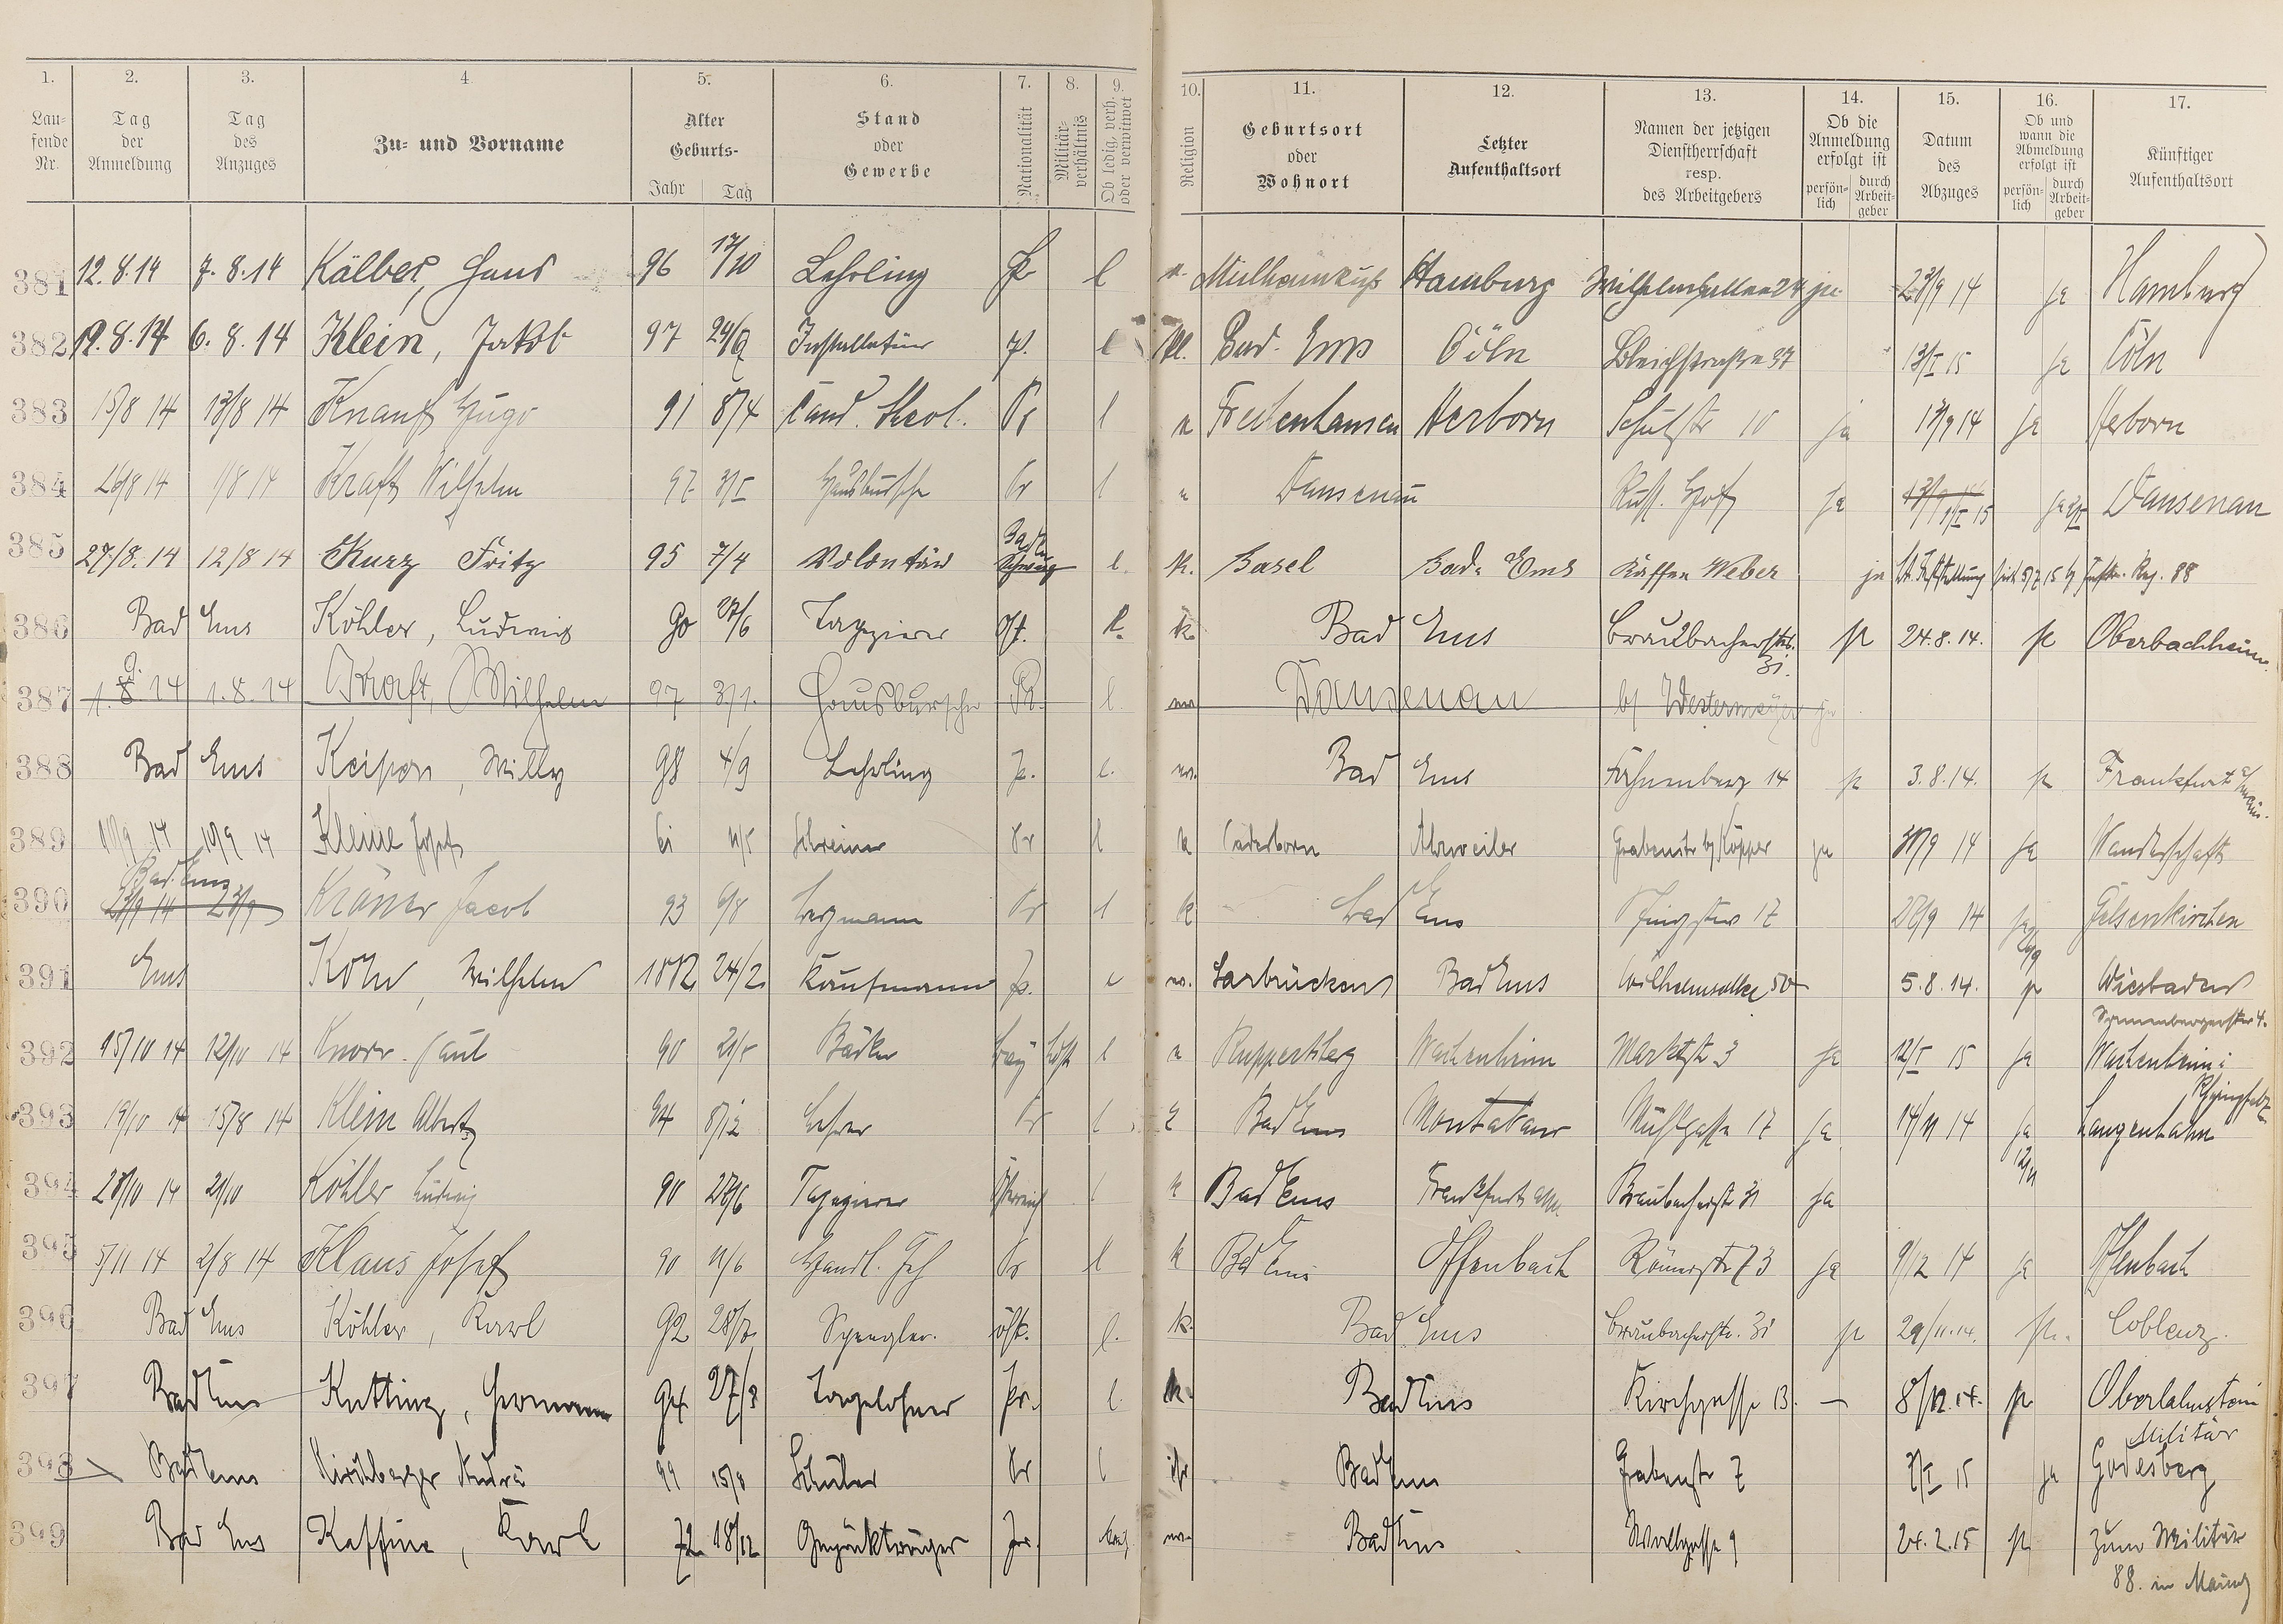 1. 2. 3. 4. 5. 6. 7. 8. 9. 10. 11. 12. 13. 14. 15. 16. 17.
Laufende Nr. Tag der Anmeldung Tag des Anzuges Zu- und Vorname Alter Geburts- Jahr Tag Stand oder Gewerbe Nationalität Militärverhältnis Ob ledig, verh. oder verwitwet Religion Geburtsort oder Wohnort Letzter Aufenthaltsort Namen der jetzigen Dienstherrschaft resp. des Arbeitgebers Ob die Anmeldung erfolgt ist persönlich durch Arbeitgeber Datum des Abzuges Ob und wann die Abmeldung erfolgt ist persönlich durch Arbeitgeber Künftiger Aufenthaltsort
381 12.8.14 7.8.14 Kälber, Hans 96 17/10 Lehrling l Hamburg Wilhelmsallee 24 ja 23/9 14 ja Hamburg
382 12.8.14 6.8.14 Klein, Jakob 97 24/9 Installateur l Bad-Ems Cöln Bleichstrasse 37 13/I 15 ja Cöln
383 15/8 14 13/8 14 Knauf Hugo 91 8/4 Cand. theol. Pr l Herborn Schulstr 10 ja 13/9 14 ja Herborn
384 26/8 14 1/8 14 Kraft Wilhelm 97 3/I Hausbursche Pr l Dausenau Russ. Hof ja 1/I 15 ja Dausenau
385 27/8.14 12/8 14 Kurz Fritz 95 7/4 Volontär Baden l. k. Basel Bad-Ems Kaffee Weber ja 88
386 Bad Ems Köhler, Ludwig 90 27/6 Tapezierer l. k. Bad Ems Braubacherstr. 31. p 24.8.14. p Oberbachheim
387 1.8.14 1.8.14 Kraft, Wilhelm 97 3/1. Hausbursche Pr. l. Dausenau b/ Westermeyer ja
388 Bad Ems Keiper, Willy 98 4/9 Lehrling p. l. Bad Ems Fahnenberg 14 p 3.8.14. p Frankfurt a/Main.
389 10/9 14 10/9 14 Kleine Josef 61 Schreiner Pr l k Paderborn Ahrweiler Grabenstr b/ Küpper ja 30/9 14 ja Wanderschaft
390 Bad Ems 23/9 14 23/9 Kräner Jacob 93 6/8 Bergmann Pr l k Bad Ems 17 28/9 14 ja Gelsenkirchen
391 Ems Wilhelm 24/2 Kaufmann p. Sarbrücken Bad Ems Wilhelmsallee 50 5.8.14. p Wiesbaden
392 15/10 14 12/10 14 Knorr Paul 90 21/5 Bäcker l Ruppertsberg Wachenheim Marktstr 3 ja 12/I 15 ja Wachenheim i Rheinpfalz
393 19/10 14 15/8 14 Klein Albert 94 8/12 Lehrer Pr l E Bad Ems Montabaur Mühlgasse 17 ja 14/11 14 ja 12/11 Langenhahn
394 28/10 14 21/10 Köhler Ludwig 90 27/6 Tapezierer Österreich l k Bad Ems Frankfurt a/M. Braubacherstr 31 ja
395 5/11 14 2/8 14 Klaus Josef 90 11/6 Handl. Geh Pr l k Bad Ems Offenbach Römerstr 73 ja 9/12 14 ja Offenbach
396 Bad Ems Köhler, Karl 92 Spengler öst. l. k. Bad Ems Braubacherstr. 31 p 29/11.14. p. Coblenz.
397 Bad Ems Kutting, Hermann 94 27/3 Tagelöhner pr. l. k. Bad Ems Kirchgasse 13. — 8/12.14. p Oberlahnstein Militär
398 Bad Ems Kirchberger André 99 15/8 Schüler Pr l isr Bad Ems Grabenstr 7 7/I 15 ja Godesberg
399 Bad Ems Kaffine, Karl 72 18/12 Gepäckträger Bad Ems Wallgasse 9 24.2.15 p zum Militär 88. in Mainz